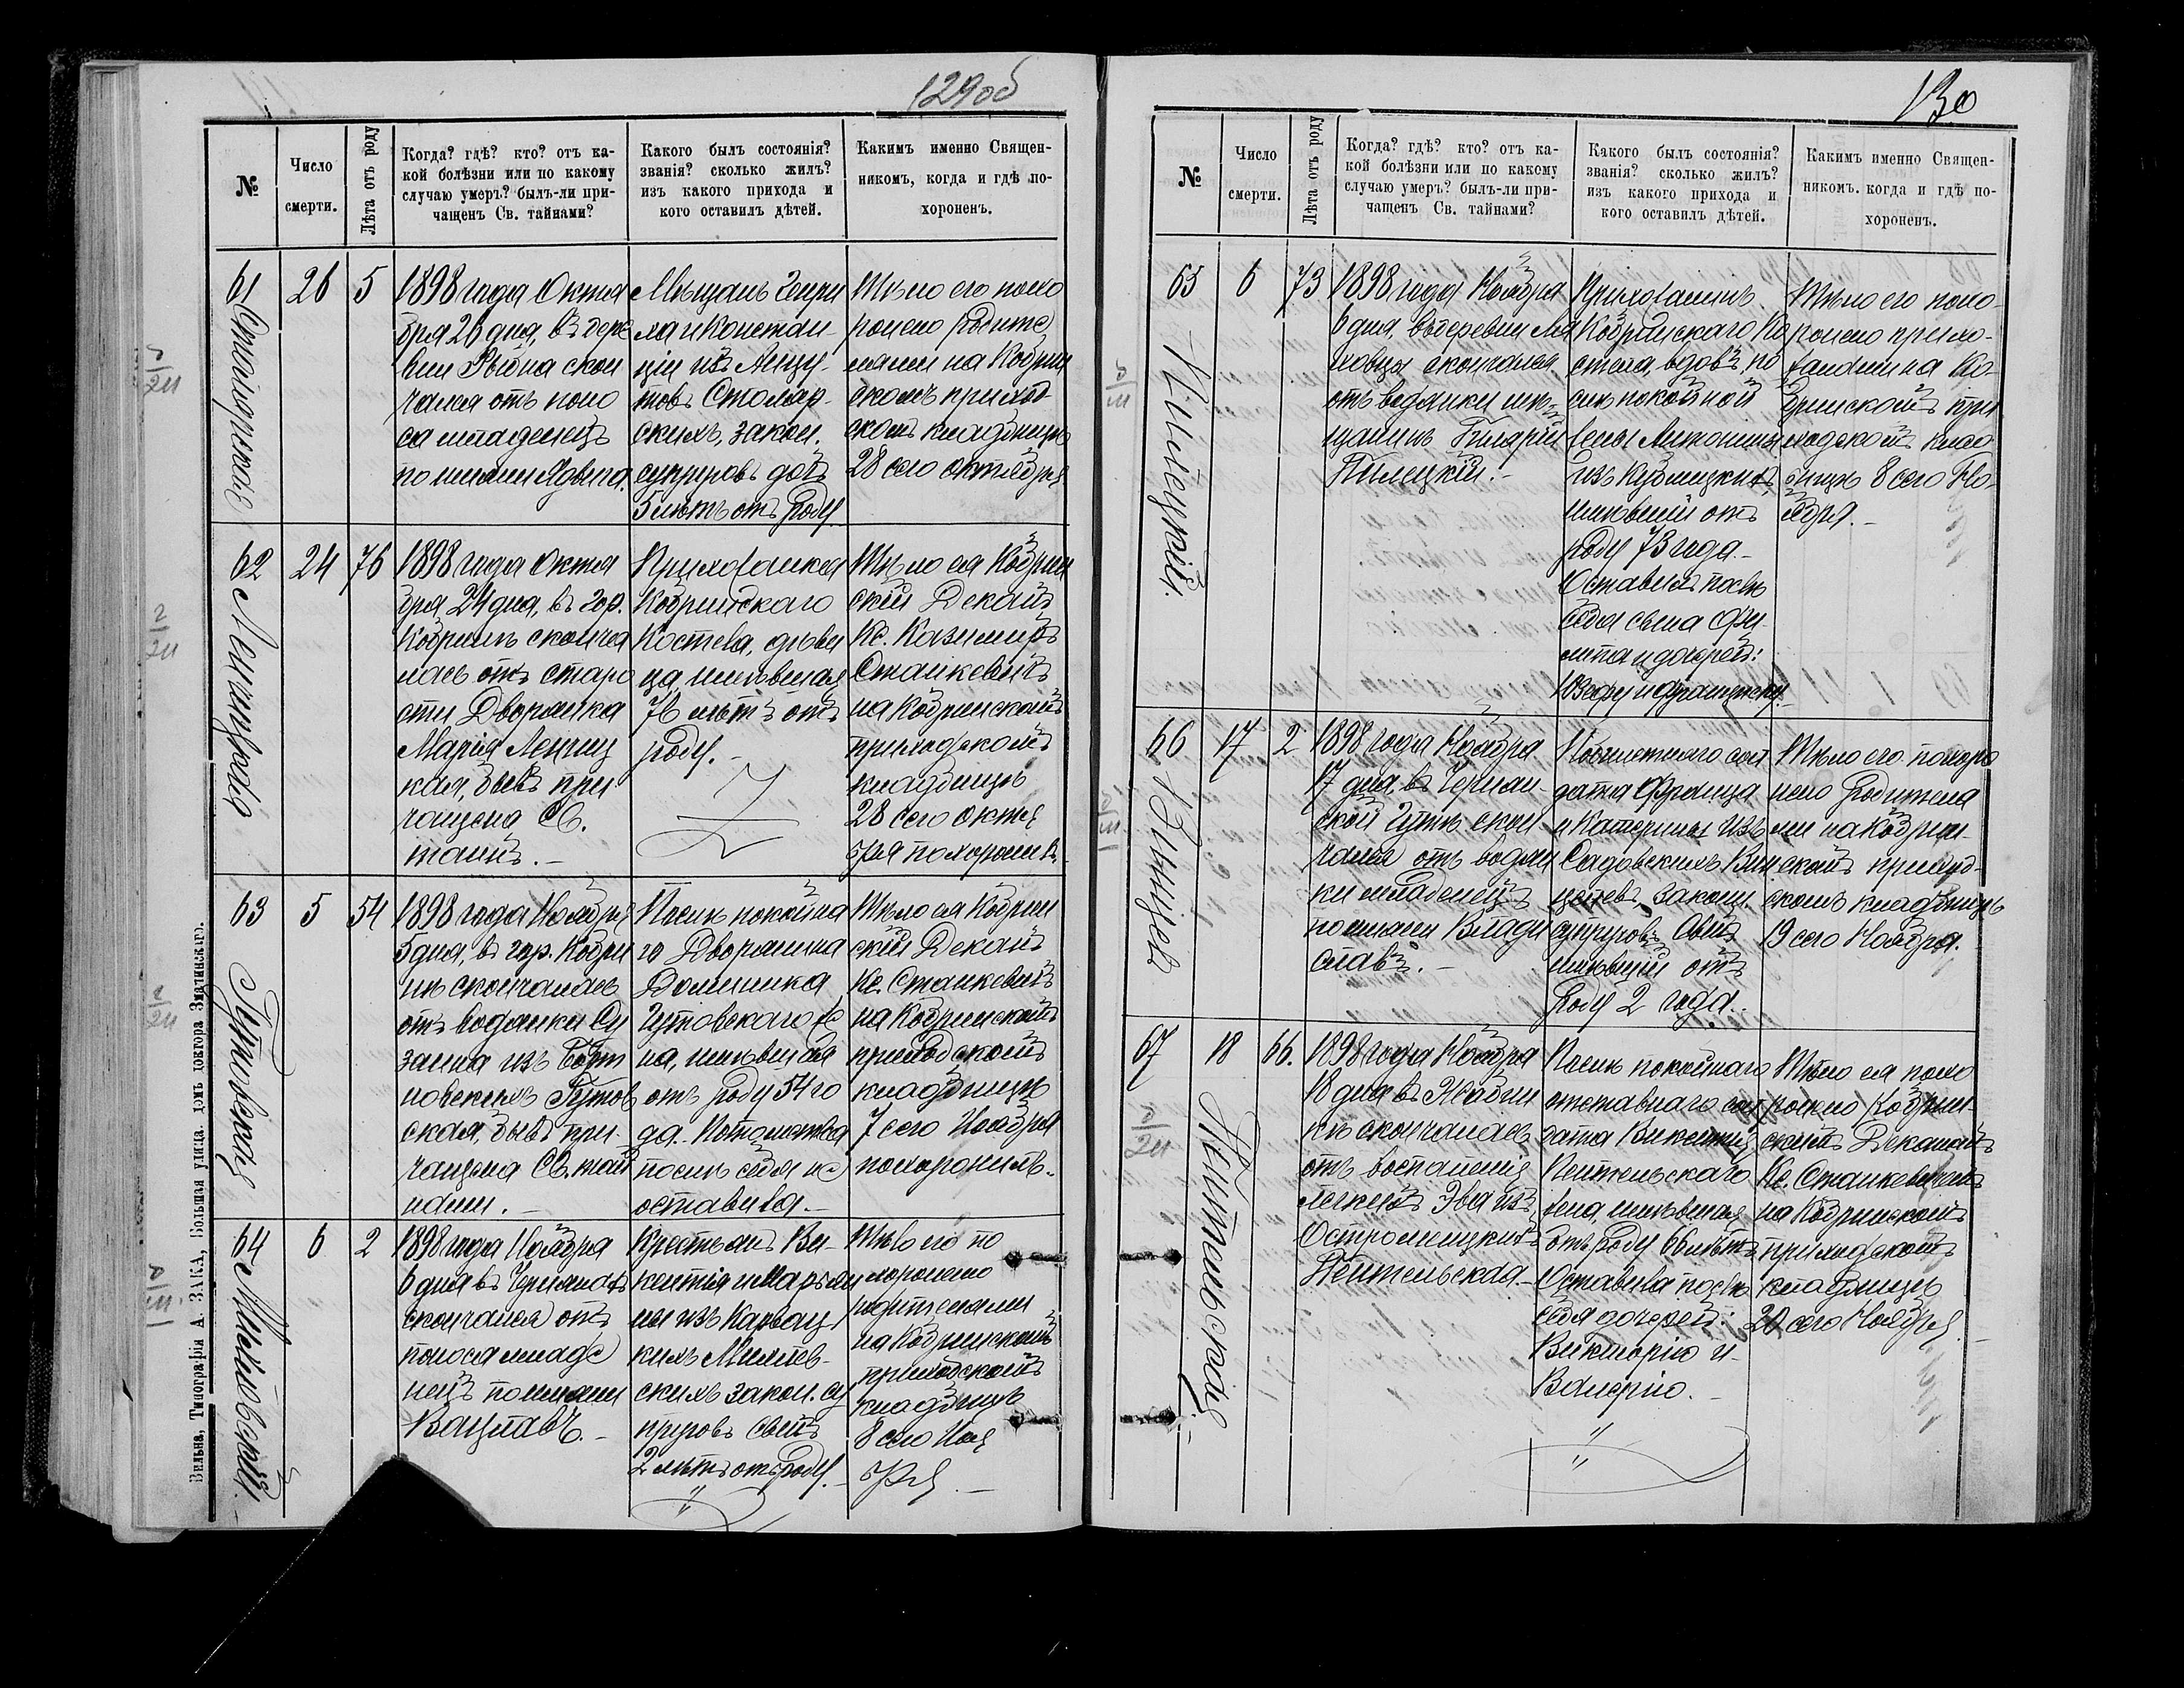 129об
№
Число
смерти.
Лѣта отъ роду
Когда? гдѣ? кто? отъ ка-
кой болѣзни или по какому
случаю умеръ? былъ-ли при-
чащенъ Св. тайнами?
Какого былъ состоянія?
званія? сколько жилъ?
изъ какого прихода и
кого оставилъ дѣтей.
Какимъ именно Священ-
никомъ, когда и гдѣ по-
хороненъ.
61
26
5
1898 года Октя
бря 26 дня, въ дере
вни скон
чался отъ поно
са младенецъ
по имени
Мѣщанъ Генри
ха и Констан-
ціи изъ
товъ Столяр-
скихъ, закон.
супруговъ
5 лѣтъ отъ роду
Тѣло его похо
ронено родите
лями на Кобрин
скомъ приход
скомъ кладбищѣ
28 сего октября
62
24
76
1898 года Октя
бря 24 дня, въ гор.
Кобринѣ сконча
лась отъ старо
сти Дворянка
Марія Ленчиц
кая, бывъ при
чащена Св.
тайнъ.-
Прихожанка
Кобринскаго
Костела, дѣви
ца, жившая
76 лѣтъ отъ
роду.-
Тѣло ея Кобрин
скій Деканъ
Кс. Казимиръ
Станкевичъ
на Кобринскомъ
приходскомъ
кладбищѣ
28 сего октя
бря похоронилъ.
63
Гутовская
5
54
1898 года Ноября
5 дня, въ гор. Кобри
нѣ скончалась
отъ водянки Су
занна изъ
новскихъ Гутов
ская, бывъ при-
чащена Св. тай
нами.-
Послѣ покойна
го Дворянина
Доминика
Гутовскаго же
на, жившая
отъ роду 54 го
да. Потомства
послѣ себя не
оставила.-
Тѣло ея Кобрин
скій Деканъ
Кс. Станкевичъ
на Кобринскомъ
приходскомъ
кладбищѣ
7 сего Ноября
похоронилъ.
64
6
2
1898 года Ноября
6 дня въ
скончался отъ
поноса младе
нецъ по имени
Вацлавъ.-
Крестьянъ Ви-
кентія и Марьян
ны изъ
кихъ
скихъ закон. су
пруговъ сынъ
2 лѣтъ отъ роду.-
Тѣло его по
хоронено
родителями
на Кобринскомъ
приходскомъ
кладбищѣ
8 сего Ноя
бря.-
Вильна, Типографія А. ЗАКА, Большая улица, домъ доктора
130
№
Число
смерти.
Лѣта отъ роду
Когда? гдѣ? кто? отъ ка-
кой болѣзни или по какому
случаю умеръ? былъ-ли при-
чащенъ Св. тайнами?
Какого былъ состоянія?
званія? сколько жилъ?
изъ какого прихода и
кого оставилъ дѣтей.
Какимъ именно Священ-
никомъ, когда и гдѣ по-
хороненъ.
65
Пилецкій.
6
73
1898 года Ноября
6 дня, въ деревни Ля
ховцы скончался
отъ водянки мѣ-
щанинъ Гиларій
Пилецкій.-
Прихожанинъ
Кобринскаго Ко
стела, вдовъ по
слѣ покойной
жены Антонины
изъ
жившій отъ
роду 73 года.-
Оставилъ послѣ
себя сына
и дочерей:
Юзефу и Францишку.
Тѣло его похо-
ронено прихо-
жанами на Ко-
бринскомъ при
ходскомъ клад
бищѣ 8 сего Но-
ября.-
66
17
2
1898 года Ноября
17 дня, въ
ской скон
чался отъ водян
ки младенецъ
по имени Влади
славъ.-
сол
дата Франца
и Катерины изъ
Садовскихъ Вин
цевъ, законн.
супруговъ сынъ
жившій отъ
роду 2 года.
Тѣло его похоро
нено родителя
ми на Кобрин-
скомъ приход-
скомъ кладбищѣ
19 сего Ноября.
67
18
66.
1898 года Ноября
18 дня въ
кѣ скончалась
отъ воспаленія
легкихъ Эва изъ
Остромецкихъ
Пейтельская.-
Послѣ покойнаго
отставнаго сол
дата Викентія
Пейтельскаго
жена, жившая
отъ роду 66 лѣтъ
Оставила послѣ
себя дочерей:
Викторію и
Валерію.-
Тѣло ея похо
ронено Кобрин-
скимъ Деканомъ
Кс. Станкевичемъ
на Кобринскомъ
приходскомъ
кладбищѣ
20 сего Ноября